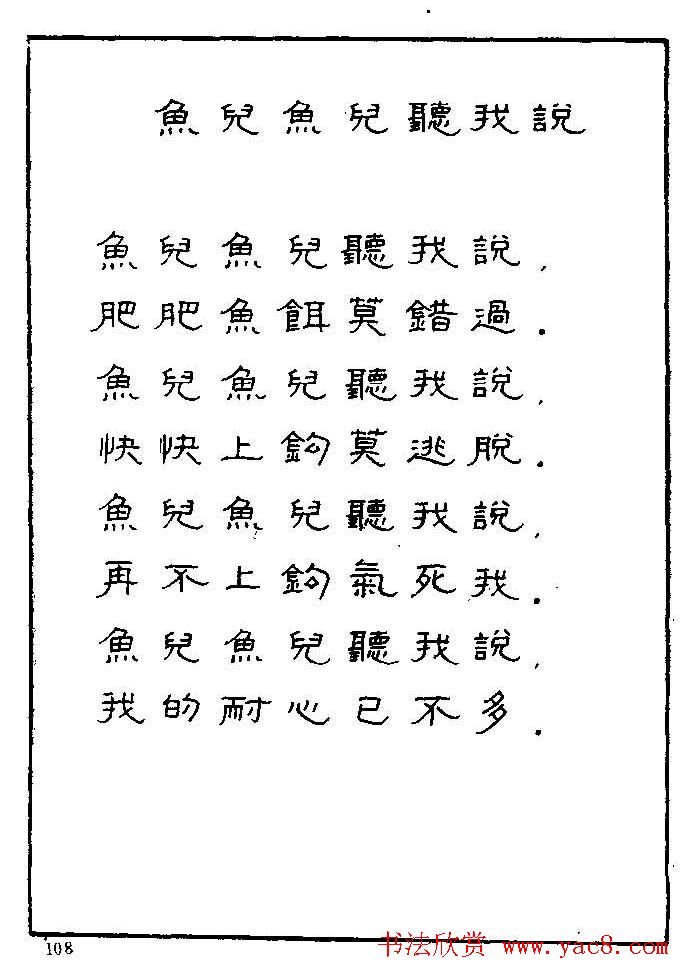 魚兒魚兒聽我說
魚兒魚兒聽我說，
肥肥魚餌莫錯過．
魚兒魚兒聽我說，
快快上鈎莫逃脫．
魚兒魚兒聽我說，
再不上鈎氣死我．
魚兒魚兒聽我說，
我的耐心已不多．
108
书法欣赏 www.yac8.com